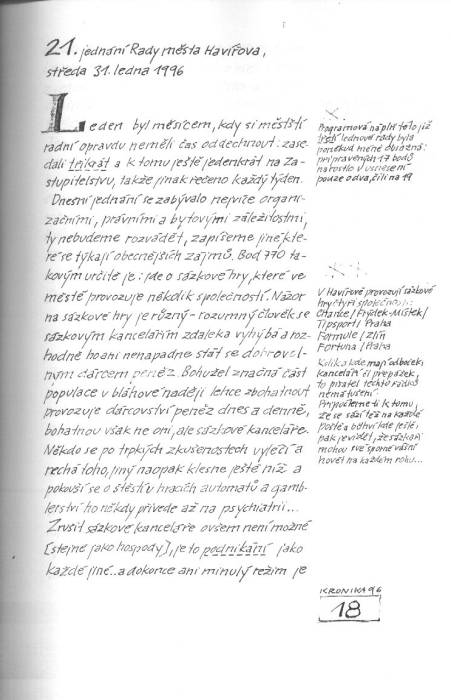 21. jednání Rady města Havířova,
středa 31. ledna 1996
Leden byl měsícem, kdy si městští
radní opravdu neměli čas oddechnout: zase-
dali třikrát a k tomu ještě jedenkrát na Za-
stupitelstvu, takže jinak řečeno každý týden.
Dnešní jednání se zabývalo nejvíce organi-
začními, právními a bytovými záležitostmi,
ty nebudeme rozvádět, zapíšeme jiné, kte-
ré se týkají obecnějších zájmů. Bod 770 ta-
kovým určitě je: jde o sázkové hry, které ve
městě provozuje několik společností. Názor
na sázkové hry je různý - rozumný člověk se
sázkovým kancelářím zdaleka vyhýbá a roz-
hodně ho ani nenapadne stát se dobrovol-
ným dárcem peněz. Bohužel značná část
populace v bláhové naději lehce zbohatnout
provozuje dárcovství peněz dnes a denně,
bohatnou však ne oni, ale sázkové kanceláře.
Někdo se po trpkých zkušenostech vyléčí a
nechá toho, jiný naopak klesne ještě níž a
pokouší se o štěstí u hracích automatů a gamb-
lerství ho někdy přivede až na psychiatrii...
Zrušit sázkové kanceláře ovšem není možné
[stejně jako hospody], je to podnikání jako
každé jiné.. a dokonce ani minulý režim je
Programová náplň této již
třetí lednové rady byla
poněkud méně obsáhlá:
připravených 17 bodů
narostlo v usnesení
pouze o dva, čili na 19
V Havířově provozují sázkové
hry čtyři společnosti:
Chance / Frýdek-Místek /
Tipsport / Praha
Formule / Zlín
Fortuna / Praha
Kolik a kde mají poboček,
kanceláří či přepážek,
to pisatel těchto řádků
nemá tušení.
Připočteme-li k tomu,
že se sází též na každé
poště a bůhví kde ještě,
pak je vidět, že sázkaři
mohou své vášni
hovět na každém roku...
KRONIKA 96
18